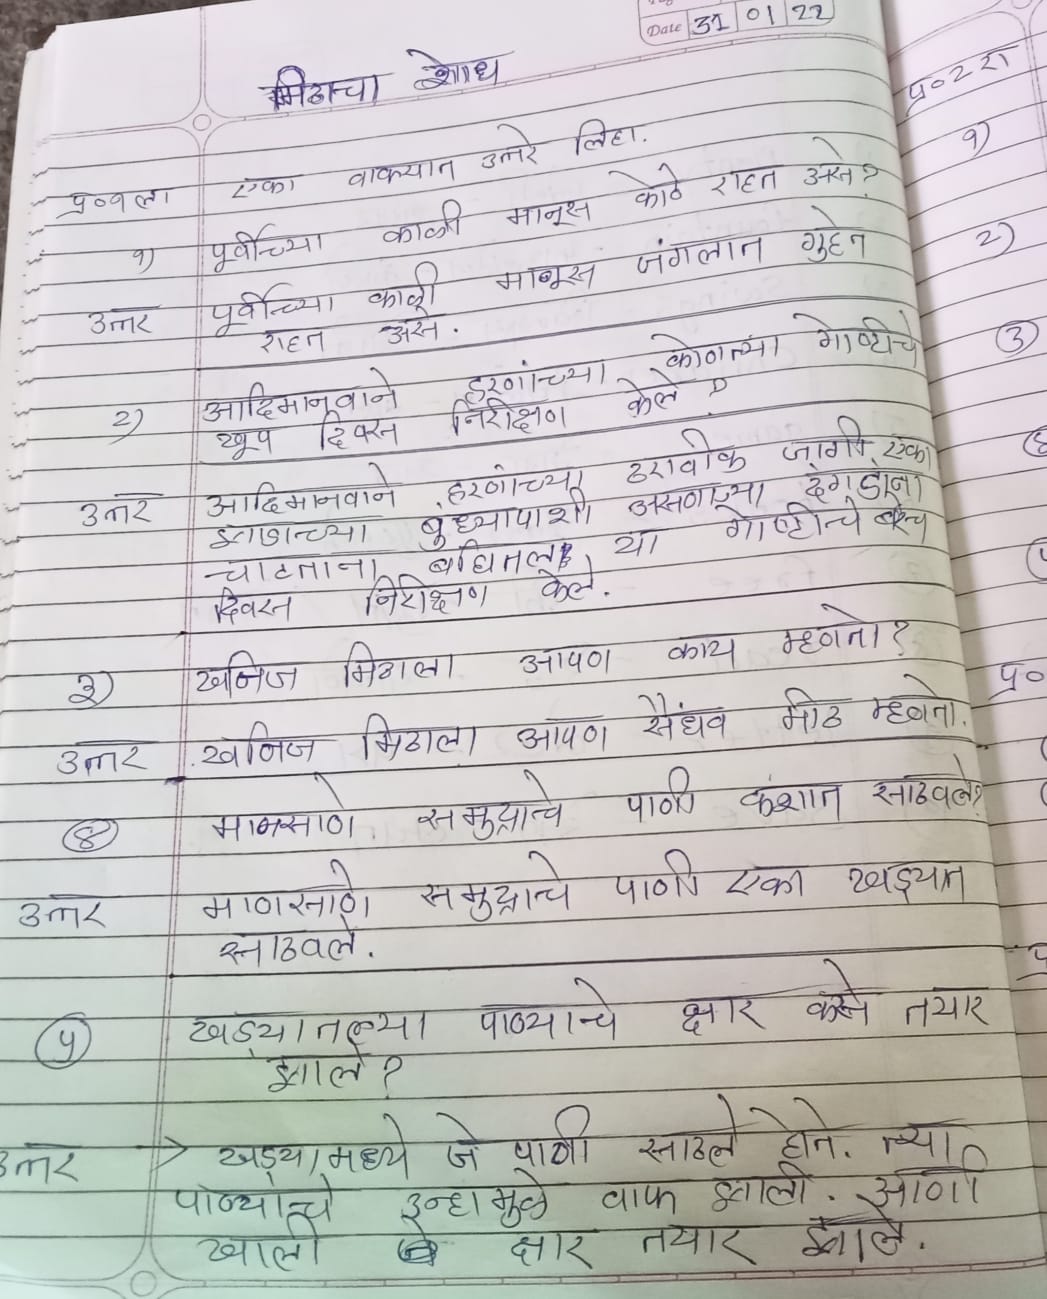 Date 31 01 22
मिठाचा शोध
प्र०१ला एका वाक्यात उत्तरे लिहा.
१) पूर्वीच्या काळी मानूस कोठे राहत असे?
उत्तर पूर्वीच्या काळी मानूस जंगलात गुहेत
राहत असे.
२) आदिमानवाने हरणांच्या कोणत्या गोष्टीचे
खूप दिवस निरीक्षण केले?
उत्तर आदिमानवाने हरणांच्या ठरावीक जागी एका
झाडाच्या बुंध्यापाशी असणाऱ्या दगडांना
चाटताना बघितले या गोष्टीचे बरेच
दिवस निरीक्षण केले.
३) खनिज मिठाला आपण काय म्हणतो?
उत्तर खनिज मिठाला आपण सैंधव मीठ म्हणतो.
४ माणसाणे समुद्राचे पाणी कशात साठवले?
उत्तर माणसाणे समुद्राचे पाणी एका खड्यात
साठवले.
५ खड्यातल्या पाण्याचे क्षार कसे तयार
झाले?
उत्तर > खड्यामध्ये जे पाणी साठले होते. त्या
पाण्याचे उन्हामुळे वाफ झाली. आणी
खाली क्षार तयार झाले.
प्र०२रा
१)
२)
३
प्र०